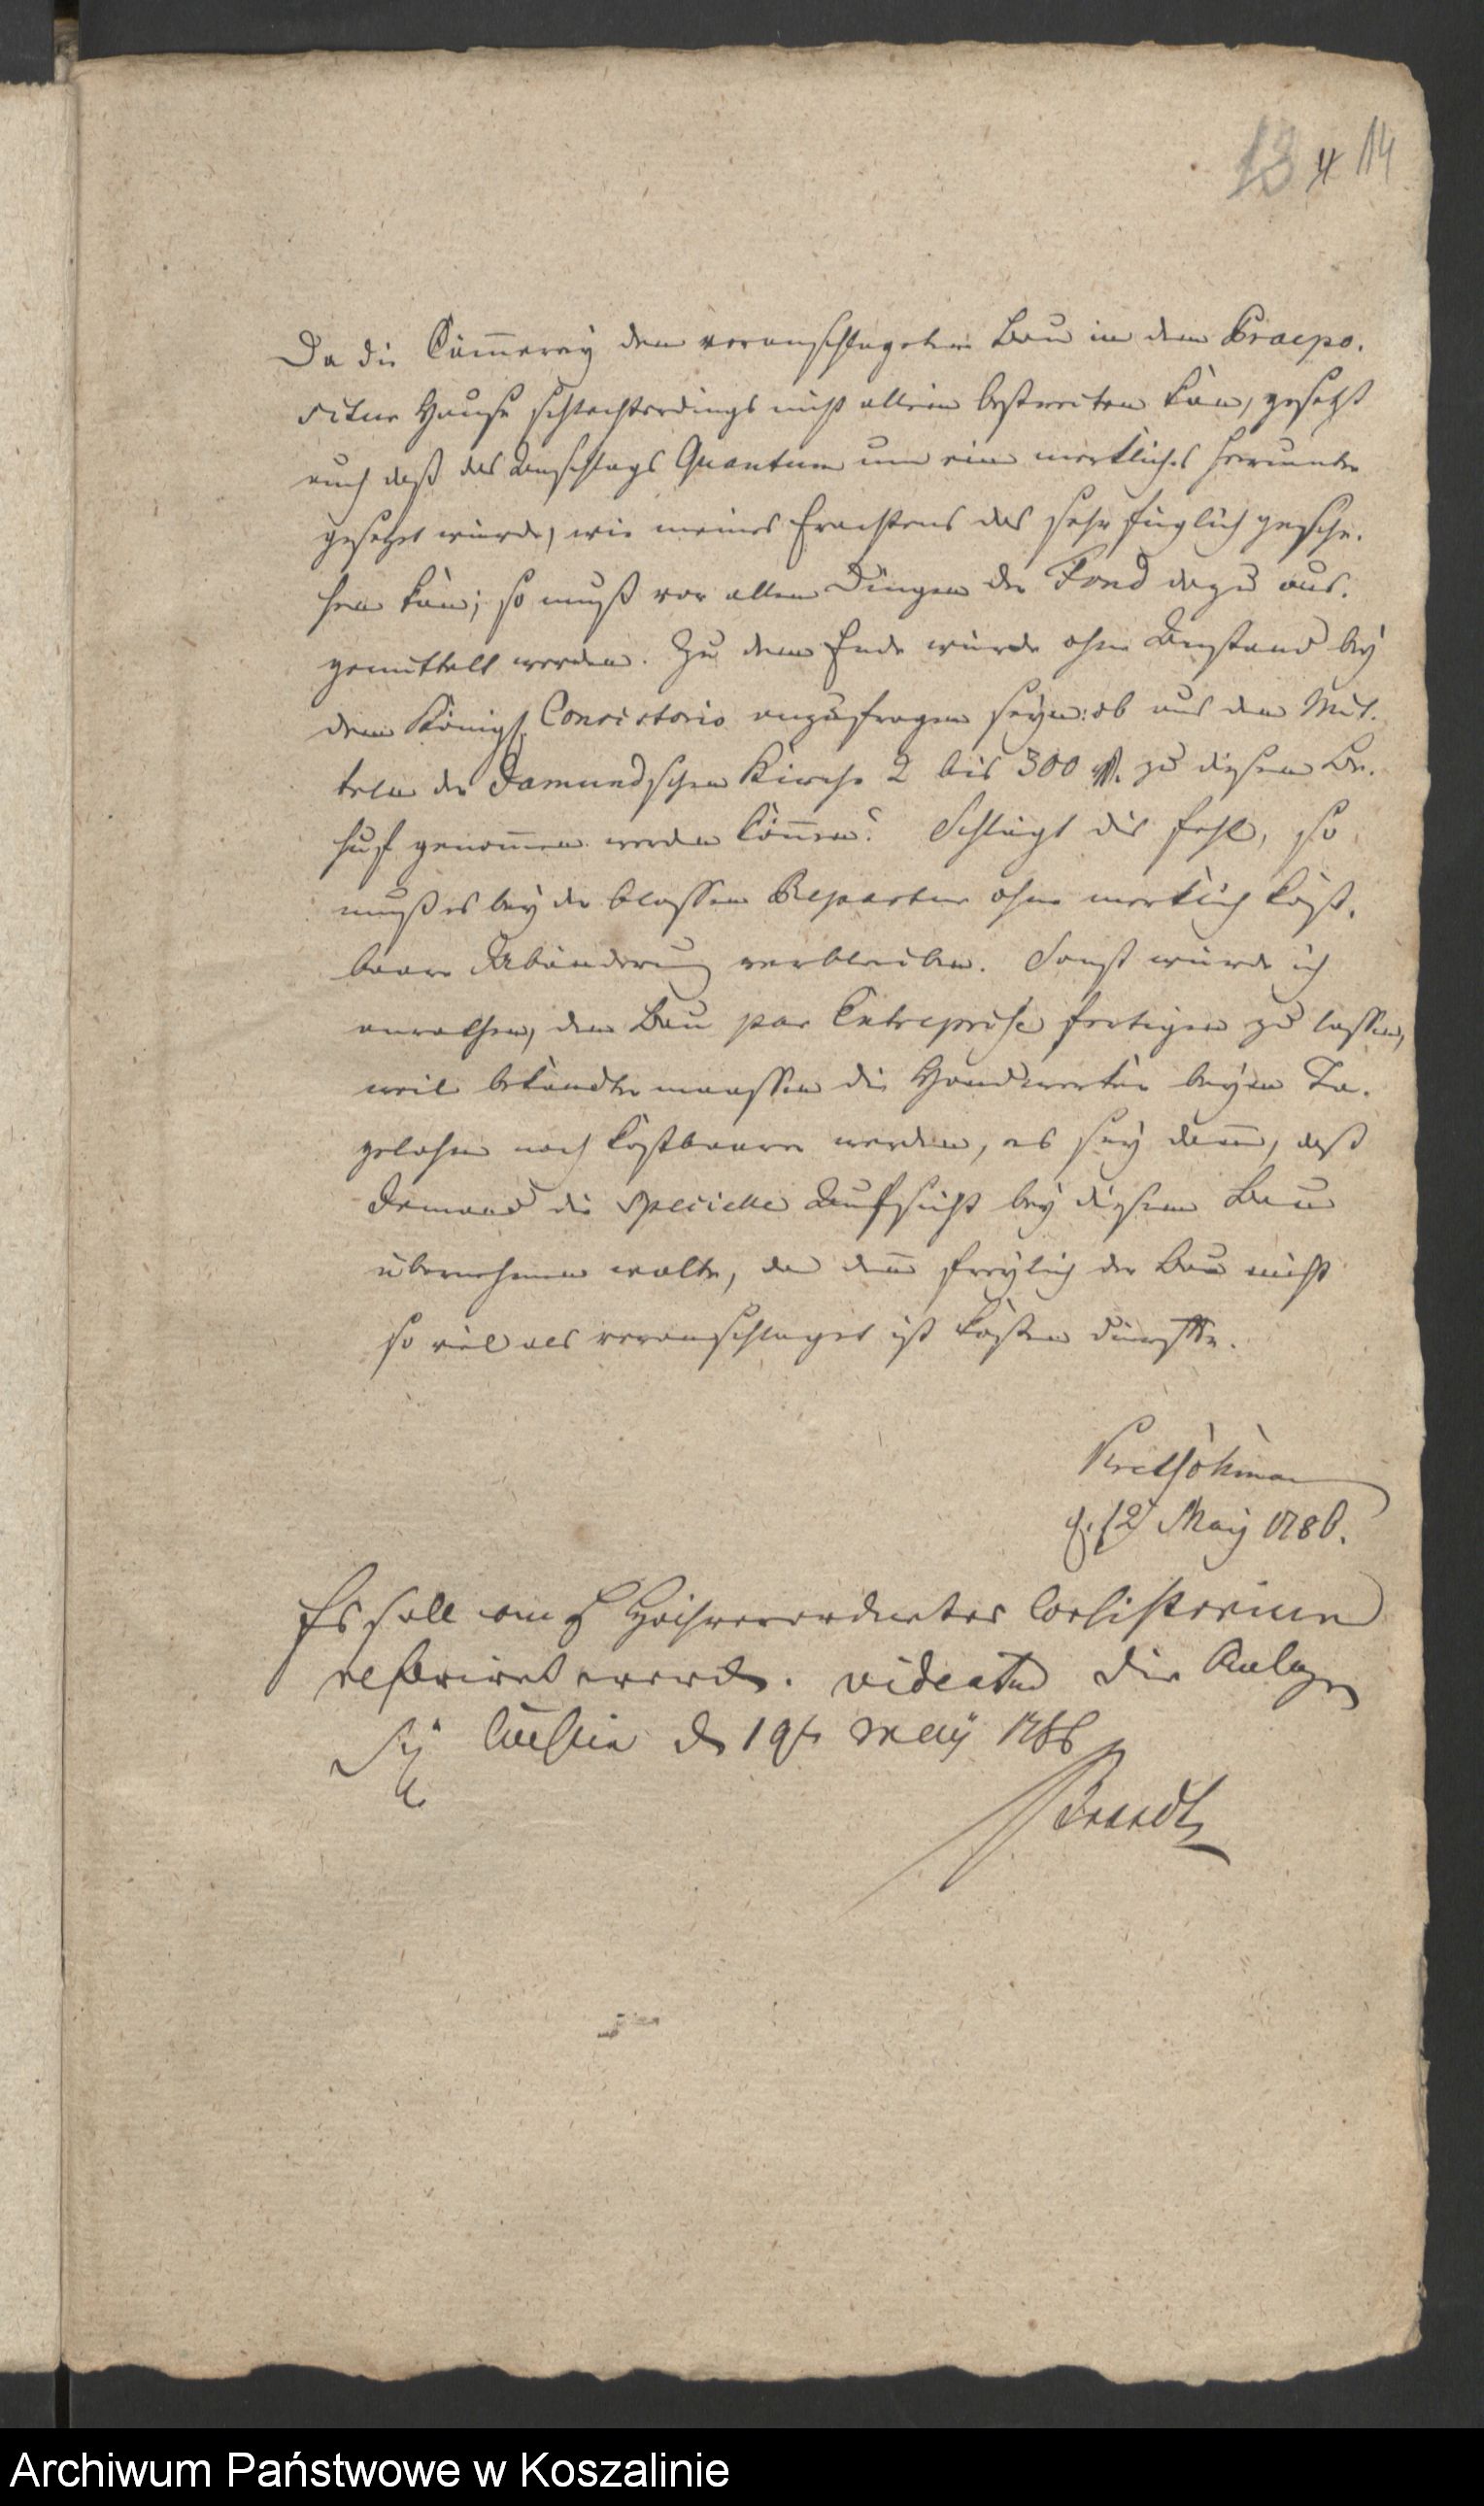 13 4 14
Da die Cämmerey den veranschlagten Bau in dem Praepo-
situr Hause schlechterdings nicht allein bestreiten kan, gesetzt
auch daß das Anschlags Quantum um ein merkliches herunter
gesetzet würde, wie meines Erachtens das sehr füglich gesche-
hen kan; so muß vor allen Dingen der Fond dazu aus-
gemittelt werden. Zu dem Ende würde ohne Anstand bey
dem Königl. Consistorio anzufragen seyn: ob aus den Mit-
teln der Jamundschen Kirche 2 bis 300 rthl. zu diesem Be-
huf genommen werden können? Schlägt dis fehl, so
muß es bey der blossen Reparatur ohne merklich kost-
baare Abänderung verbleiben. Sonst würde ich
anrathen, den Bau par Entreprise fertigen zu lassen,
weil bekandtermaassen die Handwerker beym Ta-
gelohn noch kostbaarer werden, es sey denn, daß
Jemand die specielle Aufsicht bey diesem Bau
übernehmen wolte, da denn freylich der Bau nicht
so viel als veranschlaget ist kosten dürfte.
d. 12 May 1786.
Es soll an Hochverordnetes Consistorium
referiret werd. videatur die Anlage
Cöslin d 19t May 1786
Brandt
Archiwum Państwowe w Koszalinie